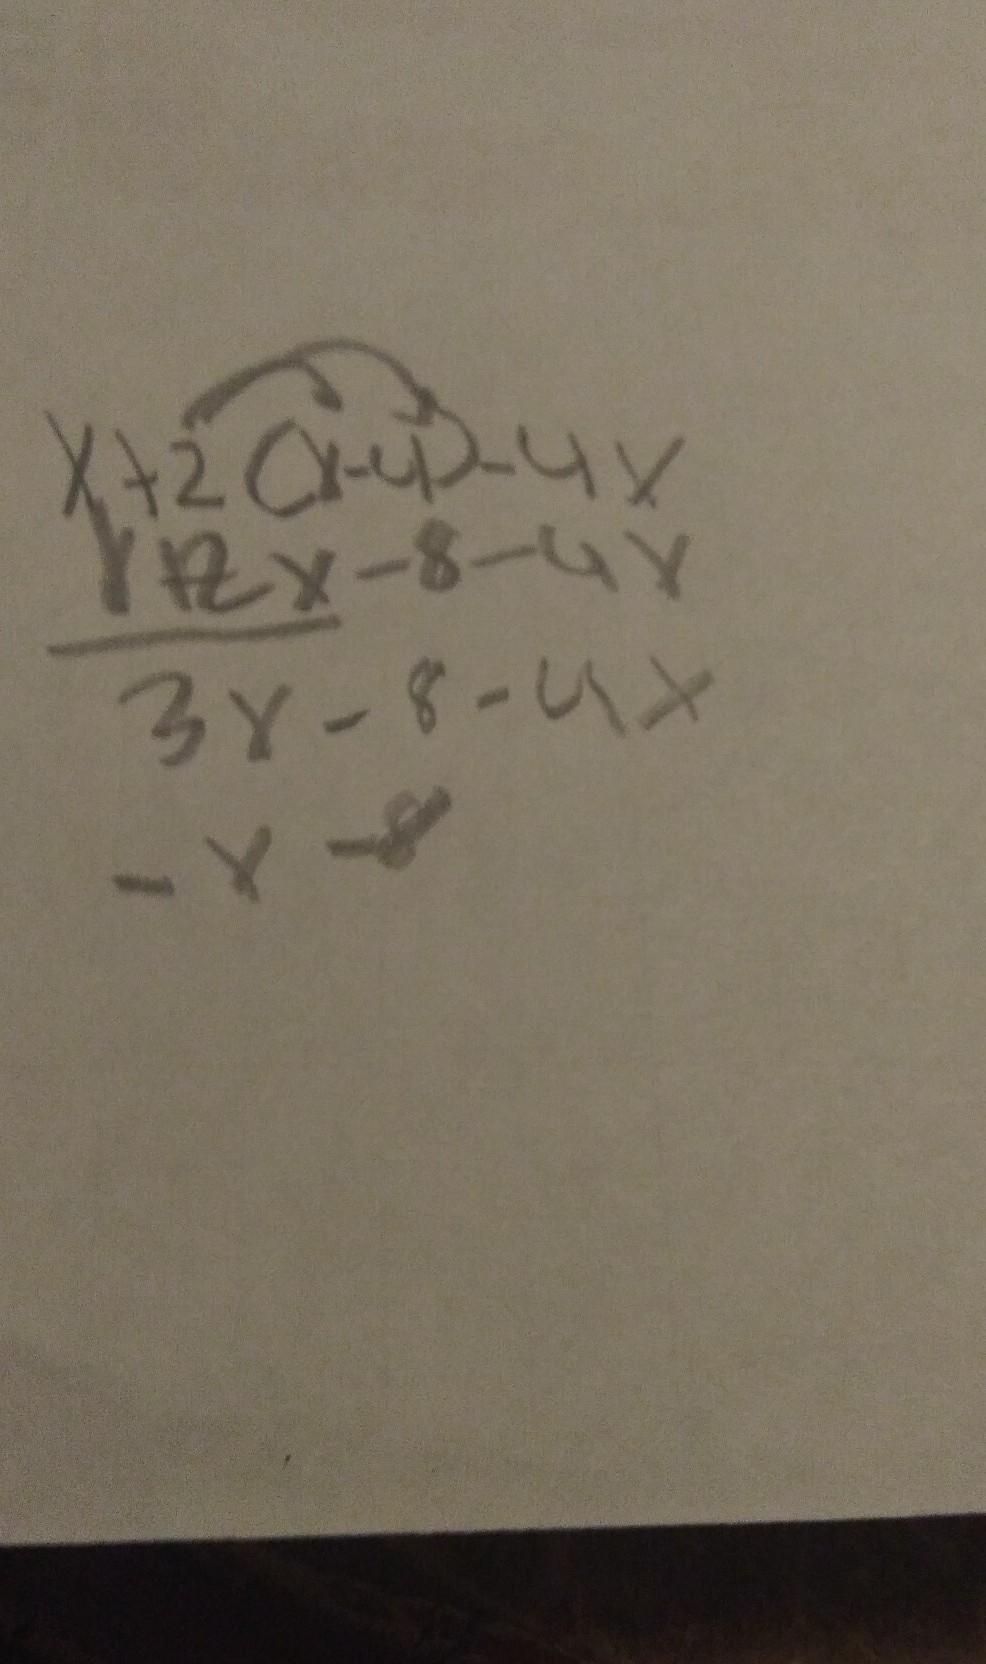 x+2(x-4)-4x
x+2x-8-4x
3x-8-4x
-x-8